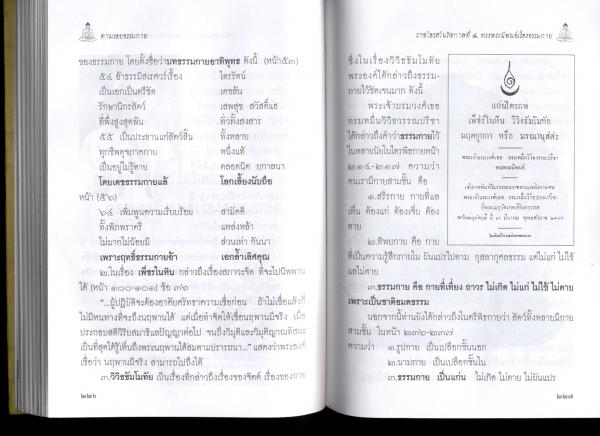 ตามรอยธรรมกาย
ของธรรมกาย โดยตั้งชื่อว่าบทธรรมกายอาทิพุทธ ดังนี้ (หน้า๕๓)
๕๔ อ้าธรรมิสเรศวร์เรื้อง ไตรรัตน์
เป็นเอกเป็นตรีชัด เดชล้น
รักษานิกรสัตว์ เสพสุข สวัสดิ์แฮ
ที่พึ่งสูงสุดพ้น ทั่วทั้งสงสาร
๕๕ เป็นประธานแก่สัตว์สิ้น ทั้งหลาย
ทุกชีพดุจกาดกาย หนึ่งแท้
เป็นอยู่ไม่รู้ตาย ตลอดนิตย์
โดยเดชธรรมกายแล้ โลกเลี้ยงนับถือ
หน้า (๕๖)
๖๔ เพิ่มพูนความเรียบร้อย สามัคคี
ทั้งพักพราตรี แหล่งหล้า
ไม่มากไม่น้อยมี ส่วนเท่า กันนา
เพราะฤทธิ์ธรรมกายอ้า เอกล้ำเลิศคุณ
๒.ในเรื่อง เพ็ชรในหิน กล่าวถึงเรื่องสภาวะจิต ที่จะไปนิพพาน
ได้ (หน้า ๑๐๐-๑๐๑) ข้อ ๓๖
"...ผู้ปฏิบัติจะต้องอาศัยศรัทธาความเชื่อก่อน ถ้าไม่เชื่อแล้วก็
ไม่มีหนทางที่จะถึงนฤพานได้ แต่เมื่อทำจิตให้เชื่อนฤพานมีจริง เมื่อ
ประกอบสติวิริยสมาธิแลปัญญาต่อไป จนถึงวิมุติแลวิมุติญาณทัสนะ
เป็นที่สุดได้รู้เห็นถึงพระนฤพานได้สมตามปรารถนา..." แสดงว่าพระองค์
เชื่อว่า นฤพานมีจริง สามารถไปถึงได้
๓.วิวิธธัมโมทัย เป็นเรื่องที่กล่าวถึงเรื่องของจิตต์ เรื่องของกาย
๒๒๖
ราชโอรสในรัชกาลที่ ๔ ทรงพระนิพนธ์เรื่องธรรมกาย
ซึ่งในเรื่องวิวิธธัมโมทัย
พระองค์ได้กล่าวถึงธรรม-
กายไว้ชัดเจนมาก ดังนี้
พระเจ้าบรมวงศ์เธอ
กรมหมื่นวิวิธวรรณปรีชา
ได้กล่าวถึงคำว่าธรรมกายไว้
ในหลายนัยในโครพีธกายหน้า
๒๑๔-๒๑๗ ความว่า
คนเรามีกายสามชั้น คือ
๑.สรีรกาย กายที่แล
เห็น ต้องแก่ ต้องเจ็บ ต้อง
ตาย
๒.ทิพยกาย คือ กาย
ที่เป็นความรู้สึกภายใน ผันแปรไปตาม กุศลากุศลธรรม แต่ไม่แก่ ไม่ใช้
แลไม่ตาย
๓.ธรรมกาย คือ กายที่เที่ยง ถาวร ไม่เกิด ไม่แก่ ไม่ใช้ ไม่ตาย
เพราะเป็นชาติอมตธรรม
นอกจากนี้ท่านยังได้กล่าวถึงในตรีพิธกายว่า สัตว์ทั้งหลายมีกาย
สามชั้น ในหน้า ๒๓๖-๒๓๗
ความว่า ๑.รูปกาย เป็นเปลือกชั้นนอก
๒.นามกาย เป็นเปลือกชั้นใน
๓.ธรรมกาย เป็นแก่น ไม่เกิด ไม่ตาย ไม่ผันแปร
๒๒๗
แก่นไตรภพ
เพ็ชร์ในหิน วิวิธธัมโมทัย
มฤตยูกถา หรือ มรณานุสสร
พระเจ้าบรมวงศ์เธอ กรมหมื่นวิวิธวรรณปรีชา
ทรงพระนิพนธ์